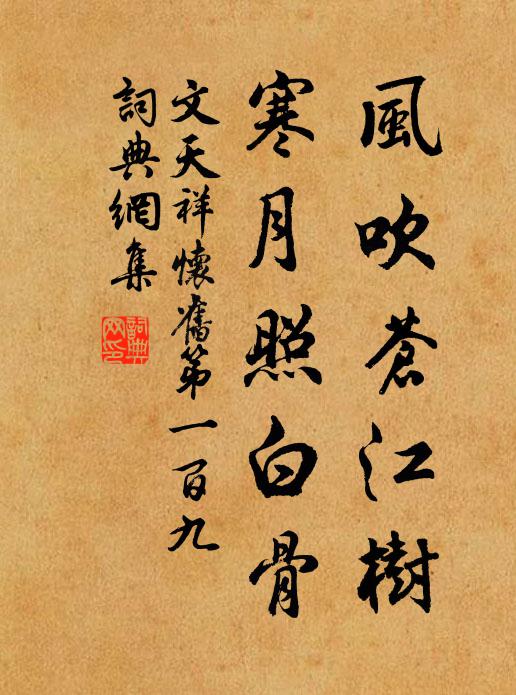 風吹蒼江樹
寒月照白骨
文天祥懷舊第一百九
詞典網集
詞典